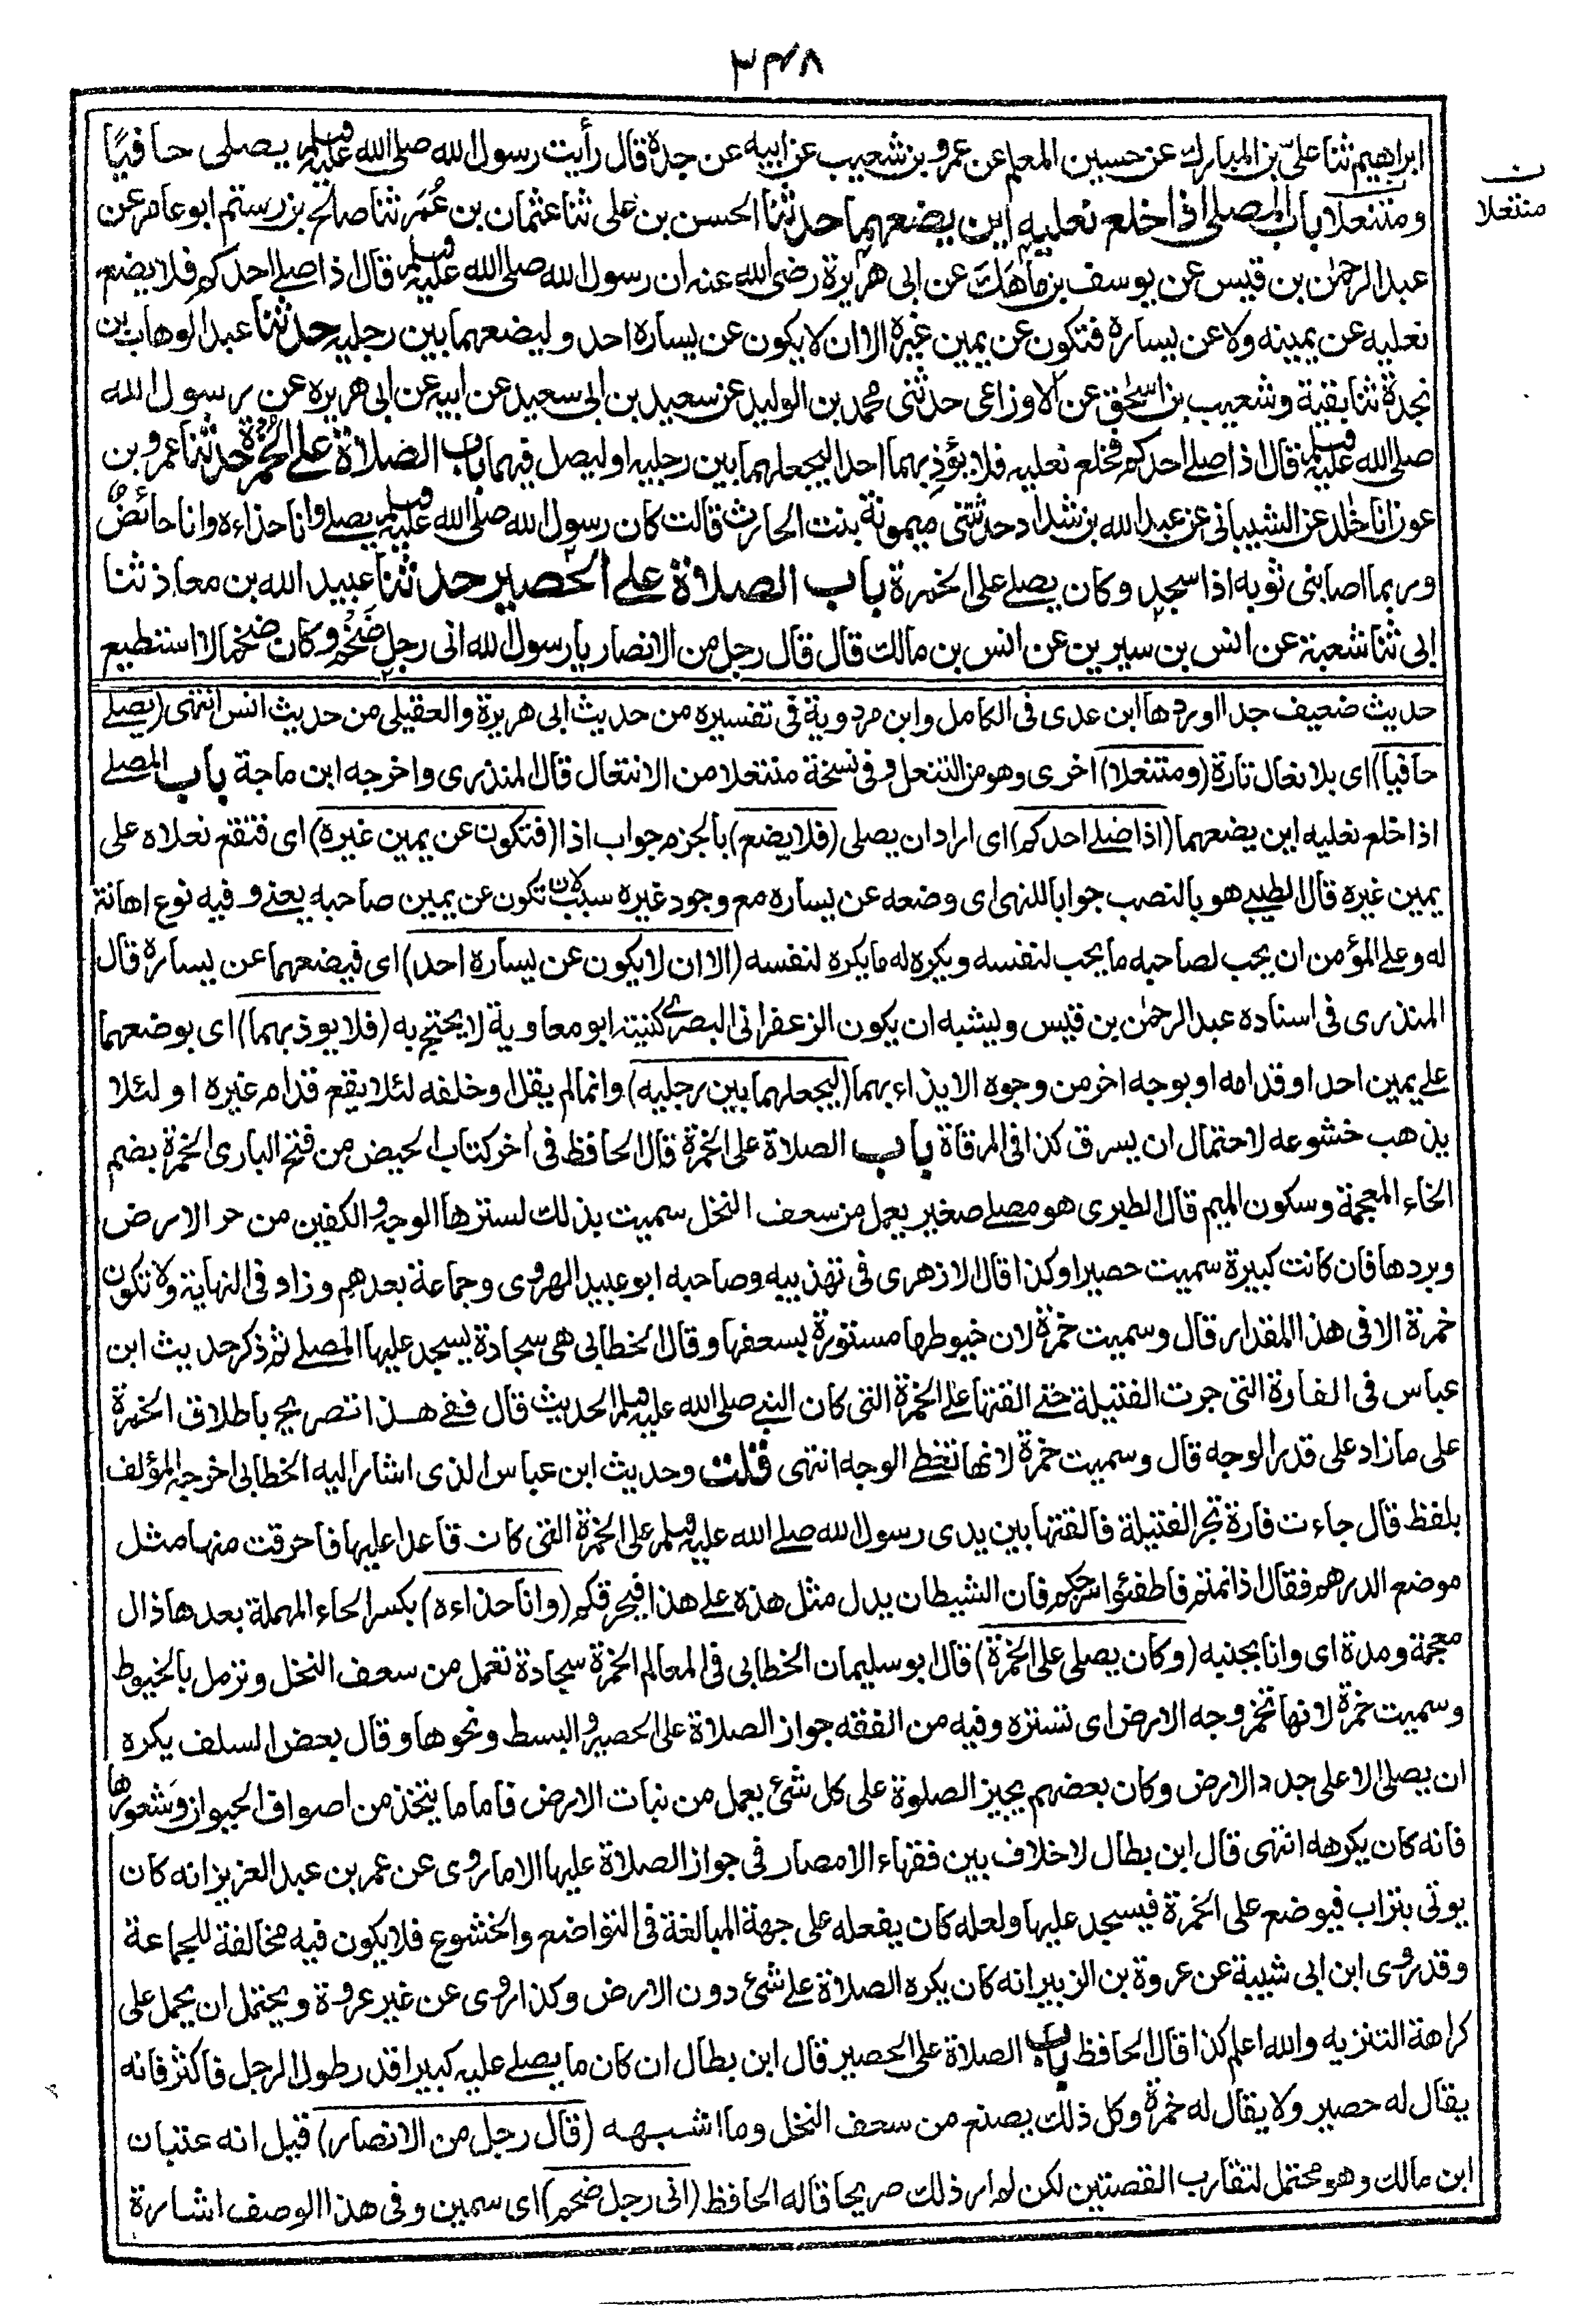 ٣٤٨
ابراهيم ثنا علىّ بن المبارك عن حسين المعلم عن عمرو بن شعيب عن ابيه عن جدة قال رأيت رسول الله صلى الله عليه وسلم يصلى حافيًا
ن
متنعلا
ومتنعلا باب المصلى اذا خلع نعليه اين يضعهما حدثنا الحسن بن على ثنا عثمان بن عُمَر ثنا صالح بن رستم ابو عامر عن
عبد الرحمٰن بن قيس عن يوسف بن ماهَك عن ابى هريرة رضى الله عنه ان رسول الله صلى الله عليه وسلم قال اذا صلے احدكم فلا يضع
نعليه عن يمينه ولا عن يسارة فتكون عن يمين غيرة الا ان لا يكون عن يسارة احد وليضعهما بين رجليه حدثنا عبد الوهاب بن
نجدة ثنا بقية وشعيب بن اسحٰق عن الاوزاعى حدثنى محمد بن الوليد عن سعيد بن ابى سعيد عن ابيه عن ابى هريره عن رسول الله
صلى الله عليه وسلم قال اذا صلے احدكم فخلع نعليه فلا يؤذِ بهما احدا ليجعلهما بين رجليه او ليصل فيهما باب الصلاة علے الخمرة حدثنا عمرو بن
عون انا خٰلد عن الشيبانى عن عبد الله بن شداد حدثتنى ميمونة بنت الحارث قالت كان رسول الله صلى الله عليه وسلم يصلے وانا حذاءه وانا حائضٌ
وربما اصابنى ثوبه اذا سجد وكان يصلے على الخمرة باب الصلاة علے الحصير حدثنا عبيد الله بن معاذ ثنا
ابى ثنا شعبة عن انس بن سيرين عن انس بن مالك قال قال رجل من الانصار يا رسول الله انى رجل ضَخْم وكان ضخما لا استطيع
حديث ضعيف جدا اوردها ابن عدى فى الكامل وابن مردوية فى تفسيره من حديث ابى هريرة والعقيلى من حديث انس انتهى (يصلے
حافيا) اى بلا نعال تارة (ومتنعلا) اخرى وهو من التنعل وفى نسخة منتعلا من الانتعال قال المنذرى واخرجه ابن ماجة باب المصلے
اذا خلع نعليه اين يضعهما (اذا صلے احدكم) اى اراد ان يصلى (فلا يضع) بالجزم جواب اذا (فتكون عن يمين غيرة) اى فتقع نعلاه على
يمين غيره قال الطيبے هو بالنصب جوابا للنهى اى وضعه عن يساره مع وجود غيره سبب لان تكون عن يمين صاحبه يعنے وفيه نوع اهانة
له وعلے المؤمن ان يحب لصاحبه ما يحب لنفسه ويكره له ما يكره لنفسه (الا ان لا يكون عن يسارة احد) اى فيضعهما عن يسارة قال
المنذرى فى اسناده عبد الرحمٰن بن قيس ويشبه ان يكون الزعفرانى البصرے كنيته ابو معاوية لا يحتج به (فلا يوذ بهما) اى بوضعهما
علے يمين احد او قدامه او بوجه اخر من وجوه الايذاء بهما (ليجعلهما بين رجليه) وانما لم يقل او خلفه لئلا يقع قدام غيره او لئلا
يذهب خشوعه لاحتمال ان يسرق كذا فى المرقاة باب الصلاة على الخمرة قال الحافظ فى اٰخر كتاب الحيض من فتح البارى الخمرة بضم
الخاء المعجمة وسكون الميم قال الطبرى هو مصلے صغير يعمل من سعف النخل سميت بذلك لسترها الوجه والكفين من حر الارض
وبردها فان كانت كبيرة سميت حصيرا وكذا قال الازهرى فى تهذيبه وصاحبه ابو عبيد الهروى وجماعة بعدهم وزاد فى النهاية ولا تكون
خمرة الا فى هذا المقدار قال وسميت خمرة لان خيوطها مستورة بسعفها وقال الخطابى هى سجادة يسجد عليها المصلے ثم ذكر حديث ابن
عباس فى الفارة التى جرت الفتيلة حتے القتها علے الخمرة التى كان النبے صلى الله عليه وسلم الحديث قال ففے هذا تصريح باطلاق الخمرة
على ما زاد على قدر الوجه قال وسميت خمرة لانها تغطے الوجه انتهى قلت وحديث ابن عباس الذى اشار اليه الخطابى اخرجه المؤلف
بلفظ قال جاءت فارة تجر الفتيلة فالقتها بين يدى رسول الله صلے الله عليه وسلم على الخمرة التى كان قاعدا عليها فاحرقت منها مثل
موضع الدرهم فقال اذا نمتم فاطفئوا سرجكم فان الشيطان يدل مثل هذه علے هذا فيحرقكم (وانا حذاءه) بكسر الحاء المهملة بعدها ذال
معجمة ومدة اى وانا بجنبه (وكان يصلى على الخمرة) قال ابو سليمان الخطابى فى المعالم الخمرة سجادة تعمل من سعف النخل وتزمل بالخيوط
وسميت خمرة لانها تخمر وجه الارض اى تستره وفيه من الفقه جواز الصلاة على الحصير والبسط ونحوها وقال بعض السلف يكره
ان يصلى الا على جدد الارض وكان بعضهم يجيز الصلوة على كل شئ يعمل من نبات الارض فاما ما يتخذ من اصواف الحيوان وشعورها
فانه كان يكرهه انتهى قال ابن بطال لا خلاف بين فقهاء الامصار فى جواز الصلاة عليها الا ما روى عن عمر بن عبد العزيز انه كان
يوتى بتراب فيوضع على الخمرة فيسجد عليها ولعله كان يفعله على جهة المبالغة فى التواضع والخشوع فلا يكون فيه مخالفة للجماعة
وقد روى ابن ابى شيبة عن عروة بن الزبير انه كان يكره الصلاة علے شئ دون الارض وكذا روى عن غير عروة ويحتمل ان يحمل على
كراهة التنزيه والله اعلم كذا قال الحافظ باب الصلاة على الحصير قال ابن بطال ان كان ما يصلے عليه كبيرا قدر طول الرجل فاكثر فانه
يقال له حصير ولا يقال له خمرة وكل ذلك يصنع من سعف النخل وما اشبهه (قال رجل من الانصار) قيل انه عتبان
ابن مالك وهو محتمل لتقارب القصتين لكن لم ار ذلك صريحا قاله الحافظ (انى رجل ضخم) اى سمين وفى هذا الوصف اشارة